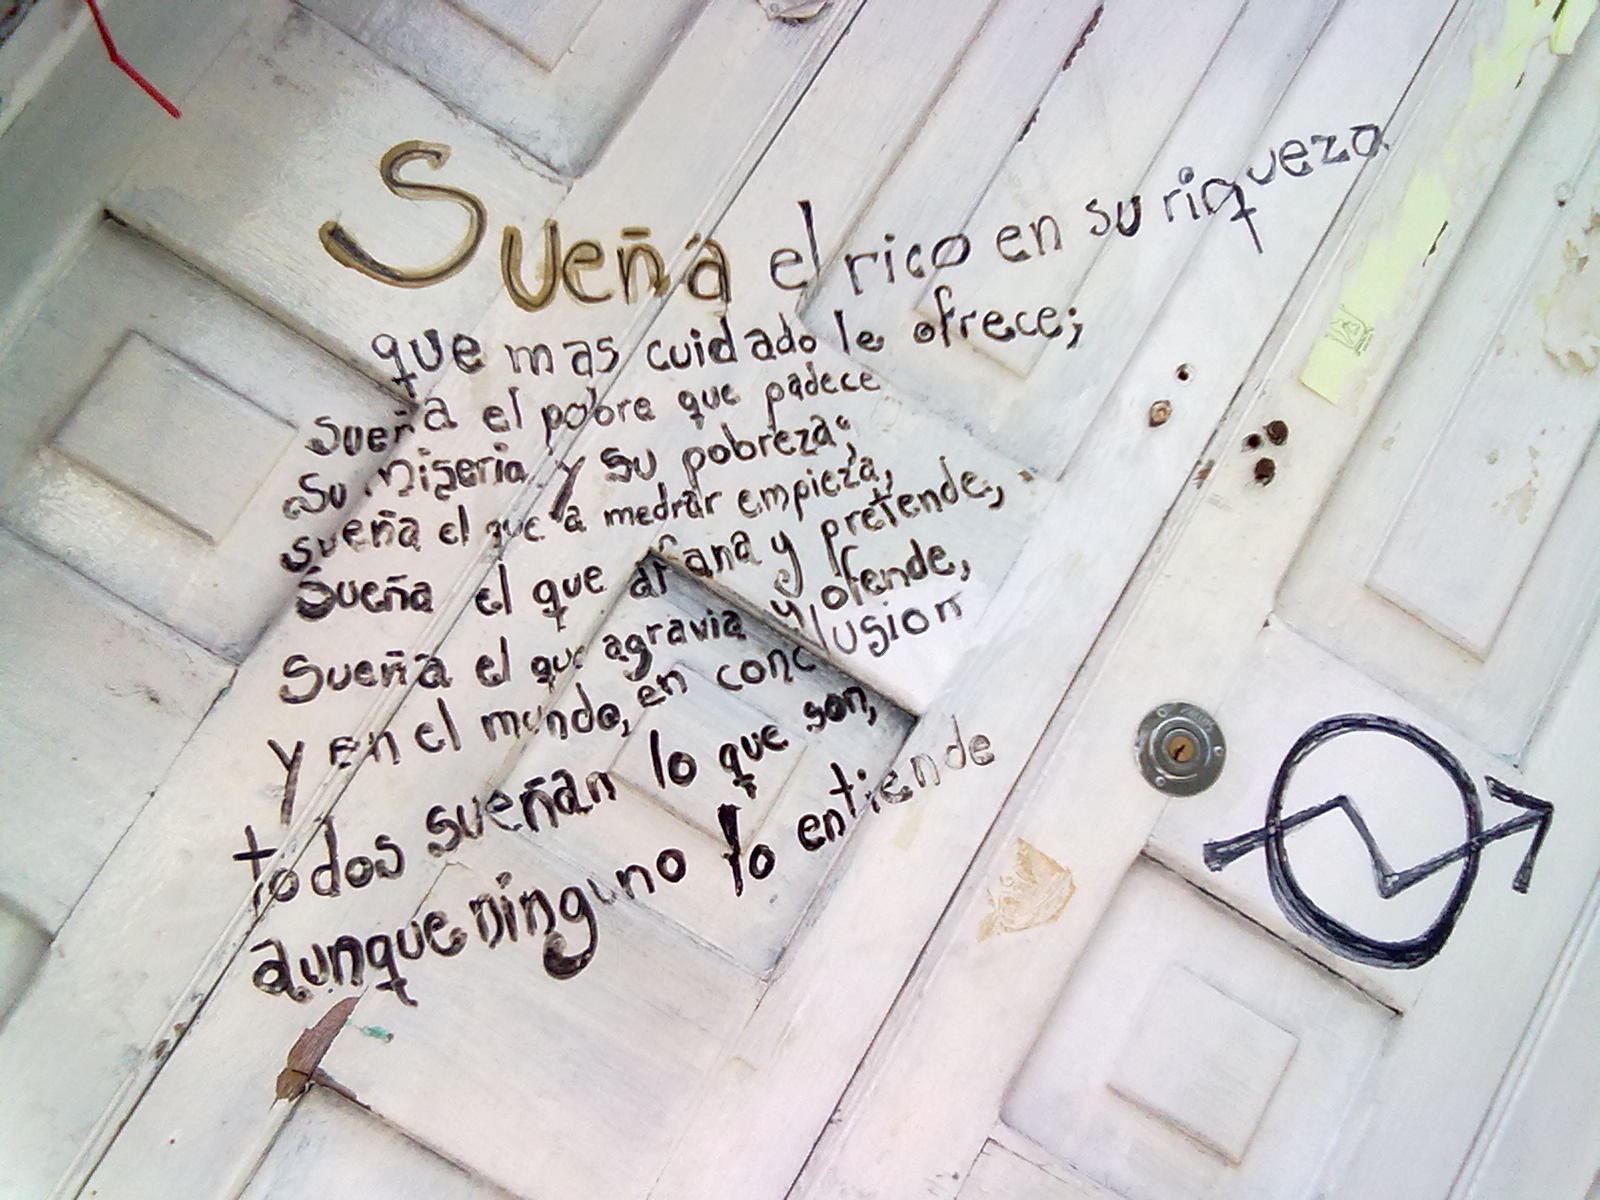 Sueña el rico en su riqueza
que mas cuidado le ofrece;
sueña el pobre que padece
su miseria y su pobreza;
sueña el que a medrar empieza,
Sueña el que afana y pretende,
Sueña el que agravia y ofende,
y en el mundo, en conclusion
todos sueñan lo que son,
aunque ninguno lo entiende